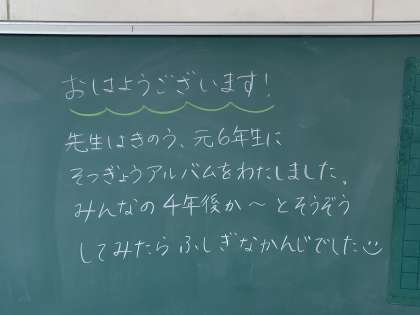 おはようございます!
先生はきのう、元6年生に
そつぎょうアルバムをわたしました。
みんなの4年後か〜とそうぞう
してみたらふしぎなかんじでした